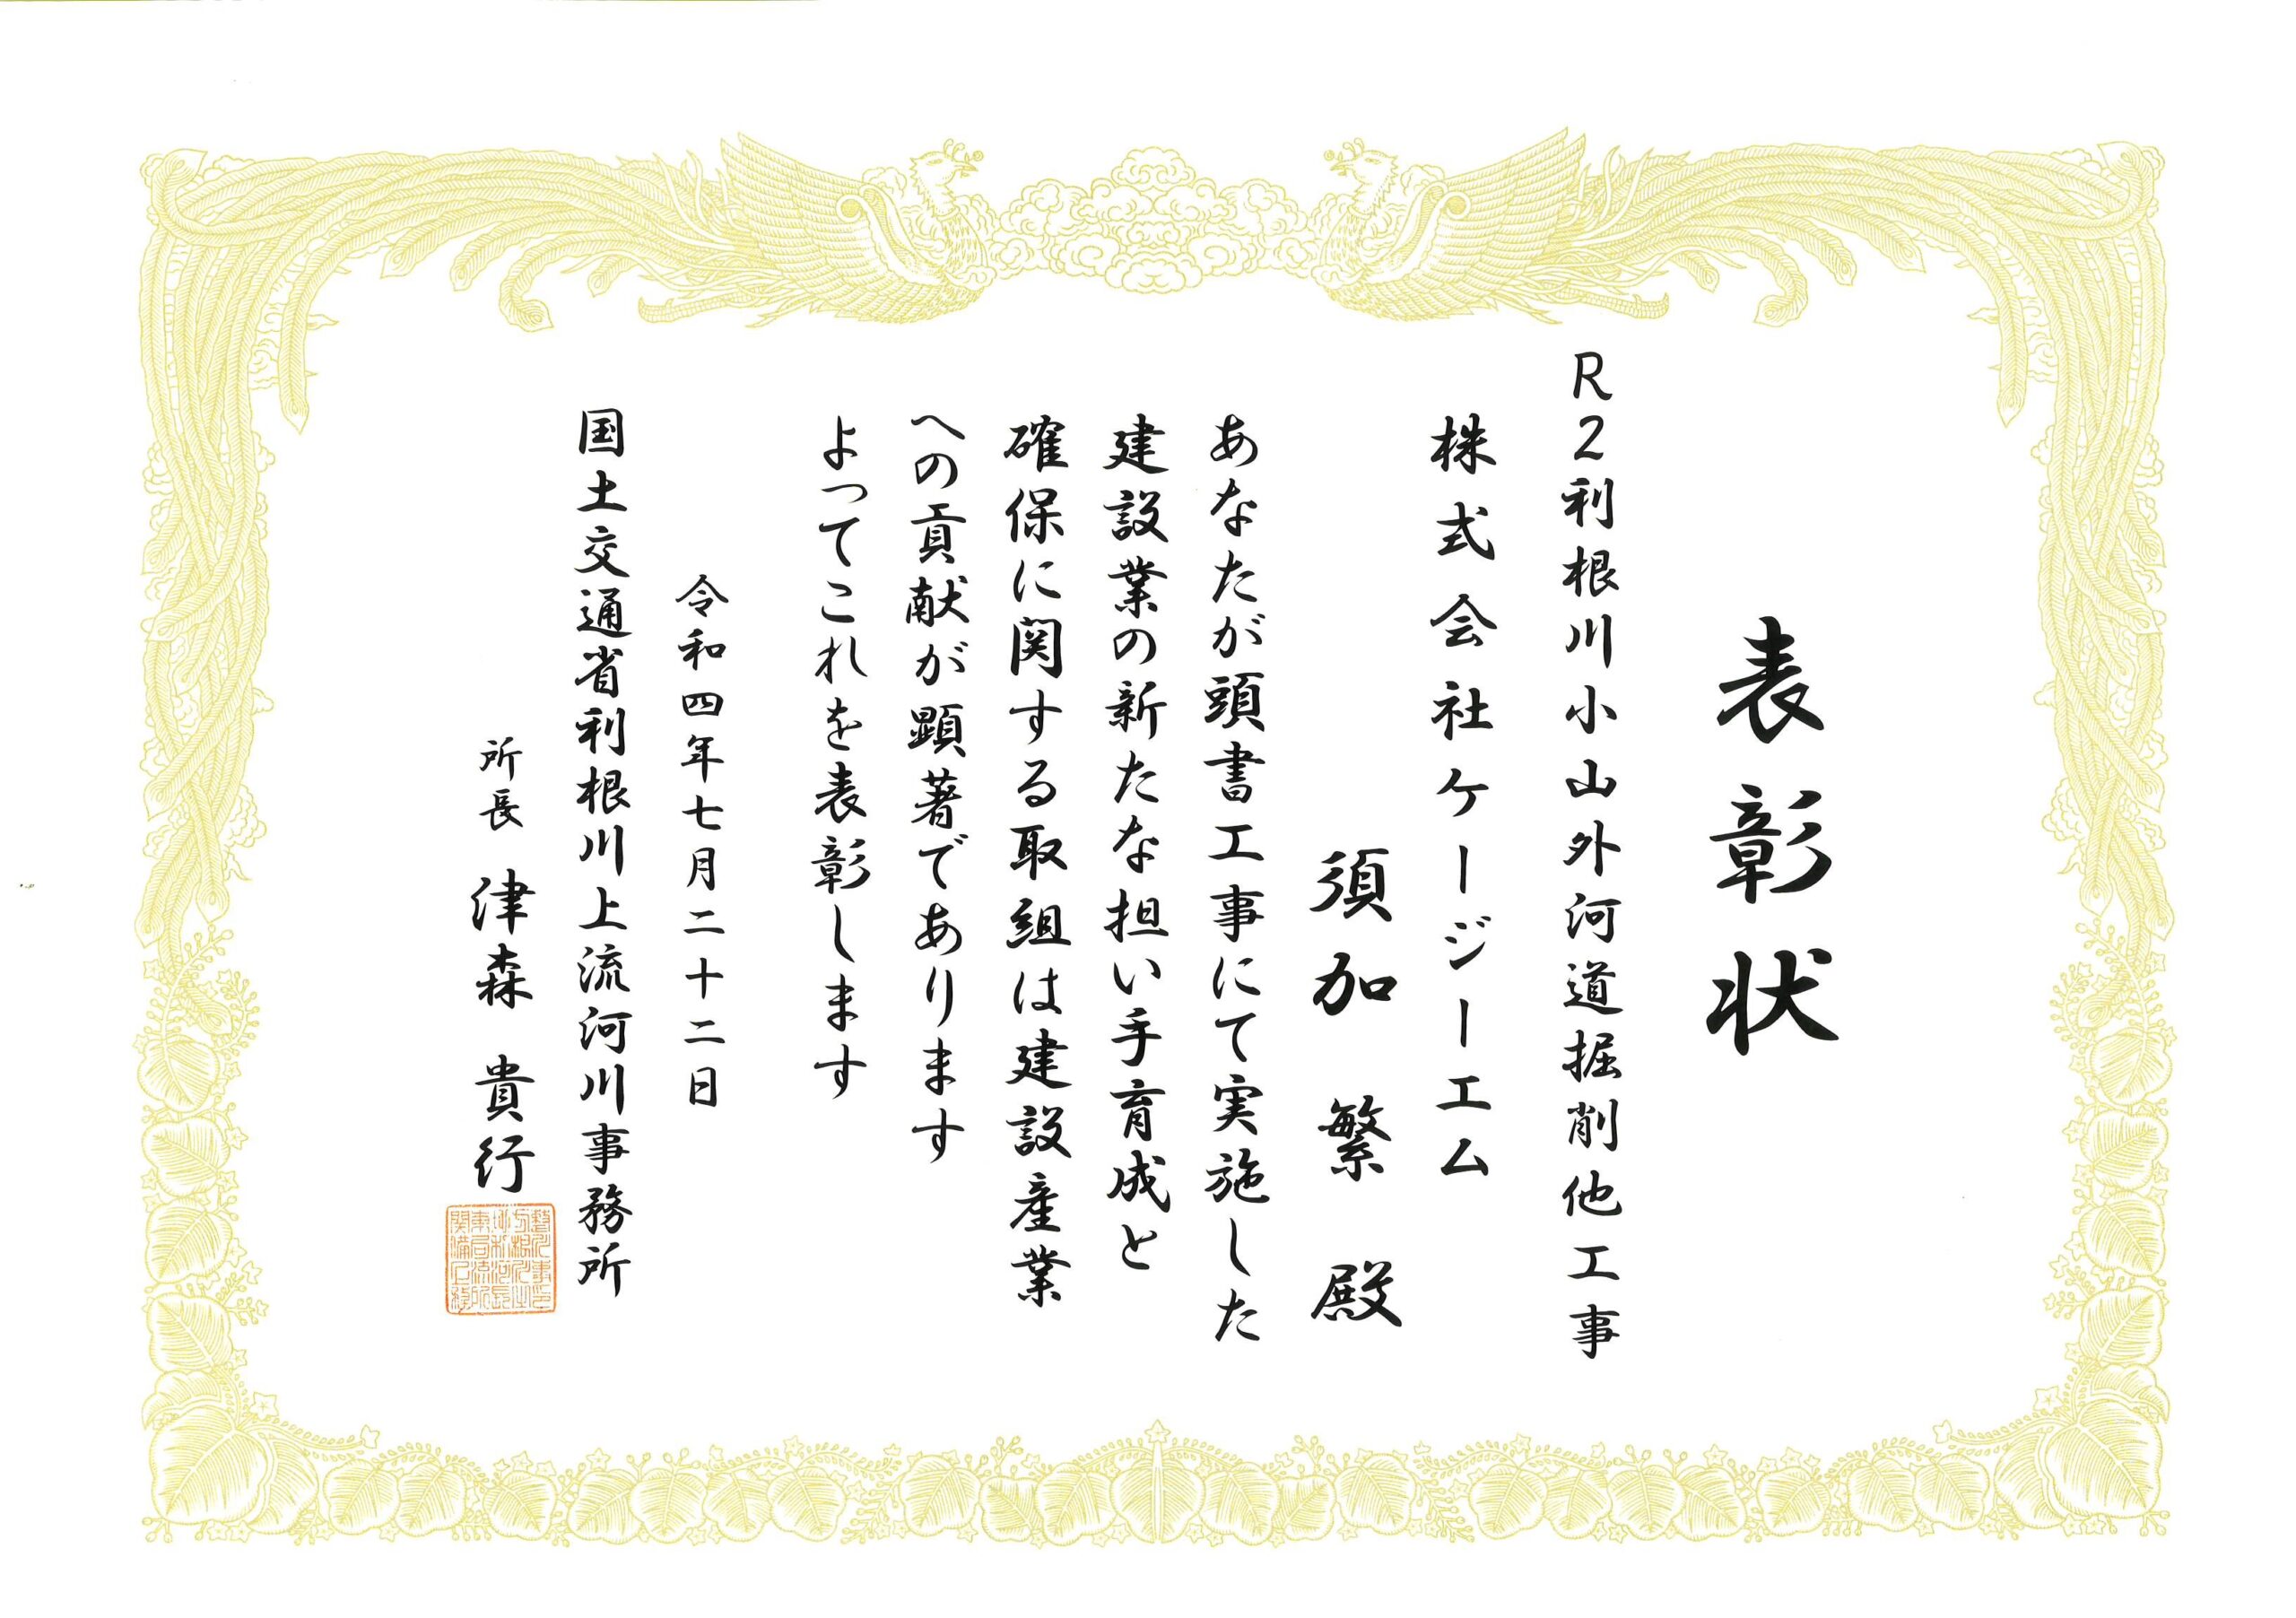 表彰状
R2利根川小山外河道掘削他工事
株式会社ケージーエム
須加 繁 殿
あなたが頭書工事にて実施した
建設業の新たな担い手育成と
確保に関する取組は建設産業
への貢献が顕著であります
よってこれを表彰します
令和四年七月二十二日
国土交通省利根川上流河川事務所
所長 津森 貴行